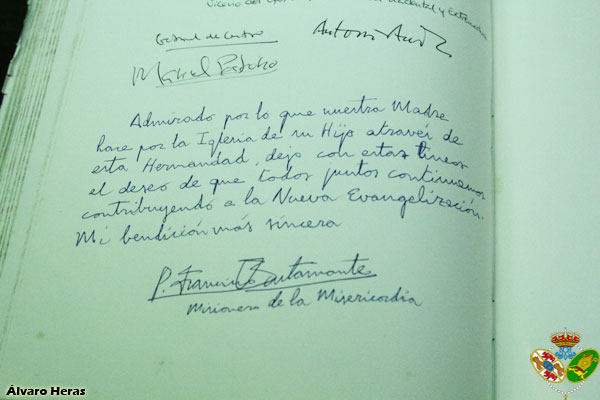 Vicario del
Occidental y Extremadura
Gabriel de Castro
Antonio
Manuel
Admirado por lo que nuestra Madre
hace por la Iglesia de su Hijo através de
esta Hermandad, dejo con estas líneas
el deseo de que todos juntos continuemos
contribuyendo a la Nueva Evangelización.
Mi bendición más sincera
P. Francisco Bustamante
Misionero de la Misericordia
Álvaro Heras